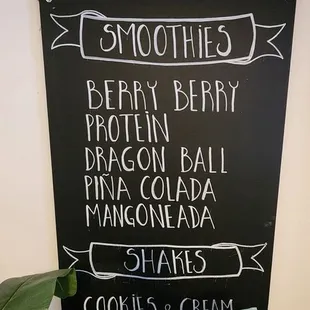 SMOOTHIES
BERRY BERRY
PROTEIN
DRAGON BALL
PIÑA COLADA
MANGONEADA
SHAKES
COOKIES & CREAM